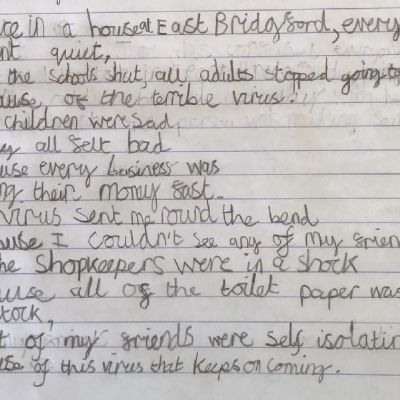 in a house at East Bridgford, every
quiet,
the schools shut, all adults stopped going to
of the terrible virus.
children were sad
all felt bad
every business was
their money fast.
virus sent me round the bend
I couldn't see any of my
the shopkeepers were in a shock
all of the toilet paper was
of my friends were self
of this virus that keeps on coming.